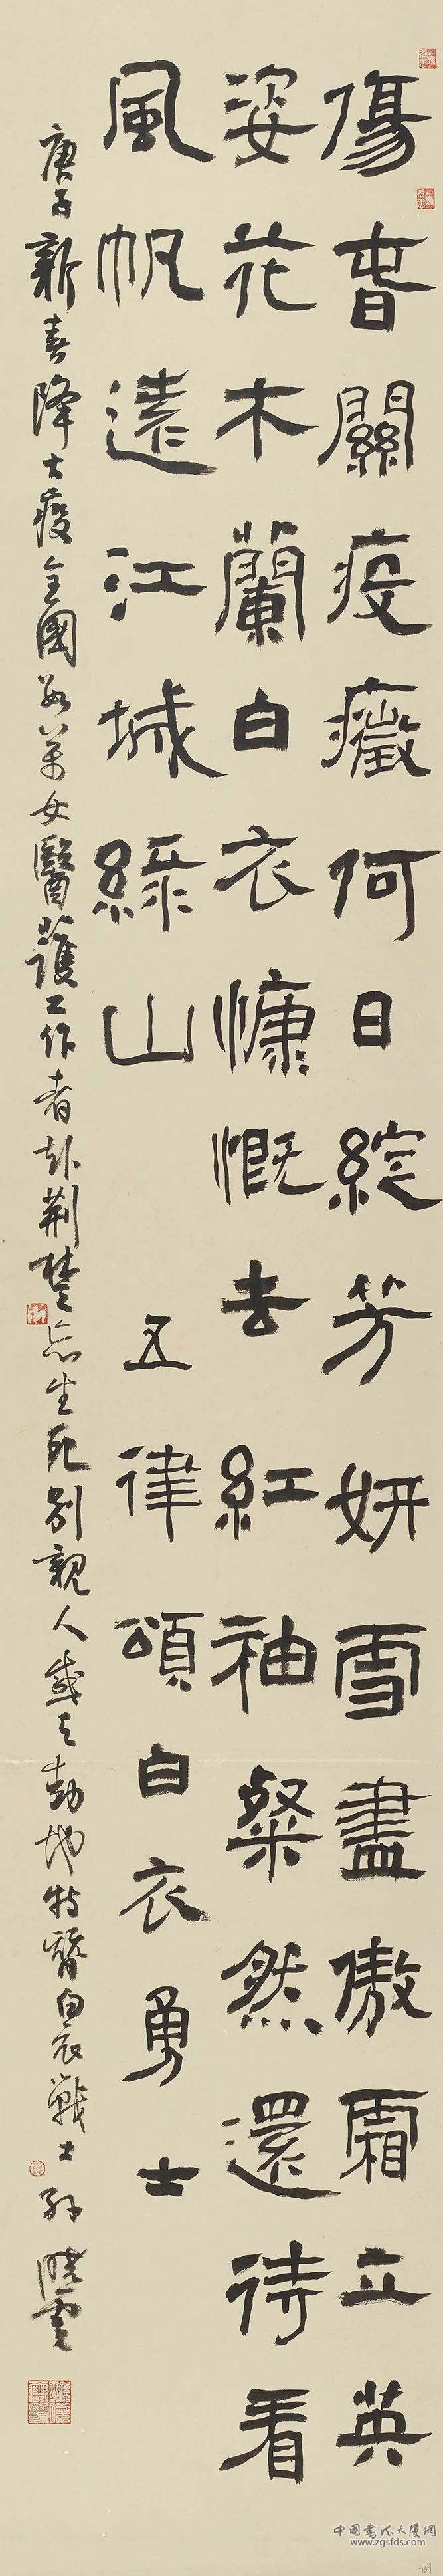 傷旾關疫癥何日綻芳妍雪盡傲霜立英
姿花木蘭白衣慷慨去紅袖粲然還待看
風帆遠江城綠山 五律頌白衣勇士
庚子新春降大疫全國數萬女醫護工作者赴荊楚忘生死別親人感天動地特贊白衣戰士 孫曉雲
中國書法大厦網
www.zgsfds.com